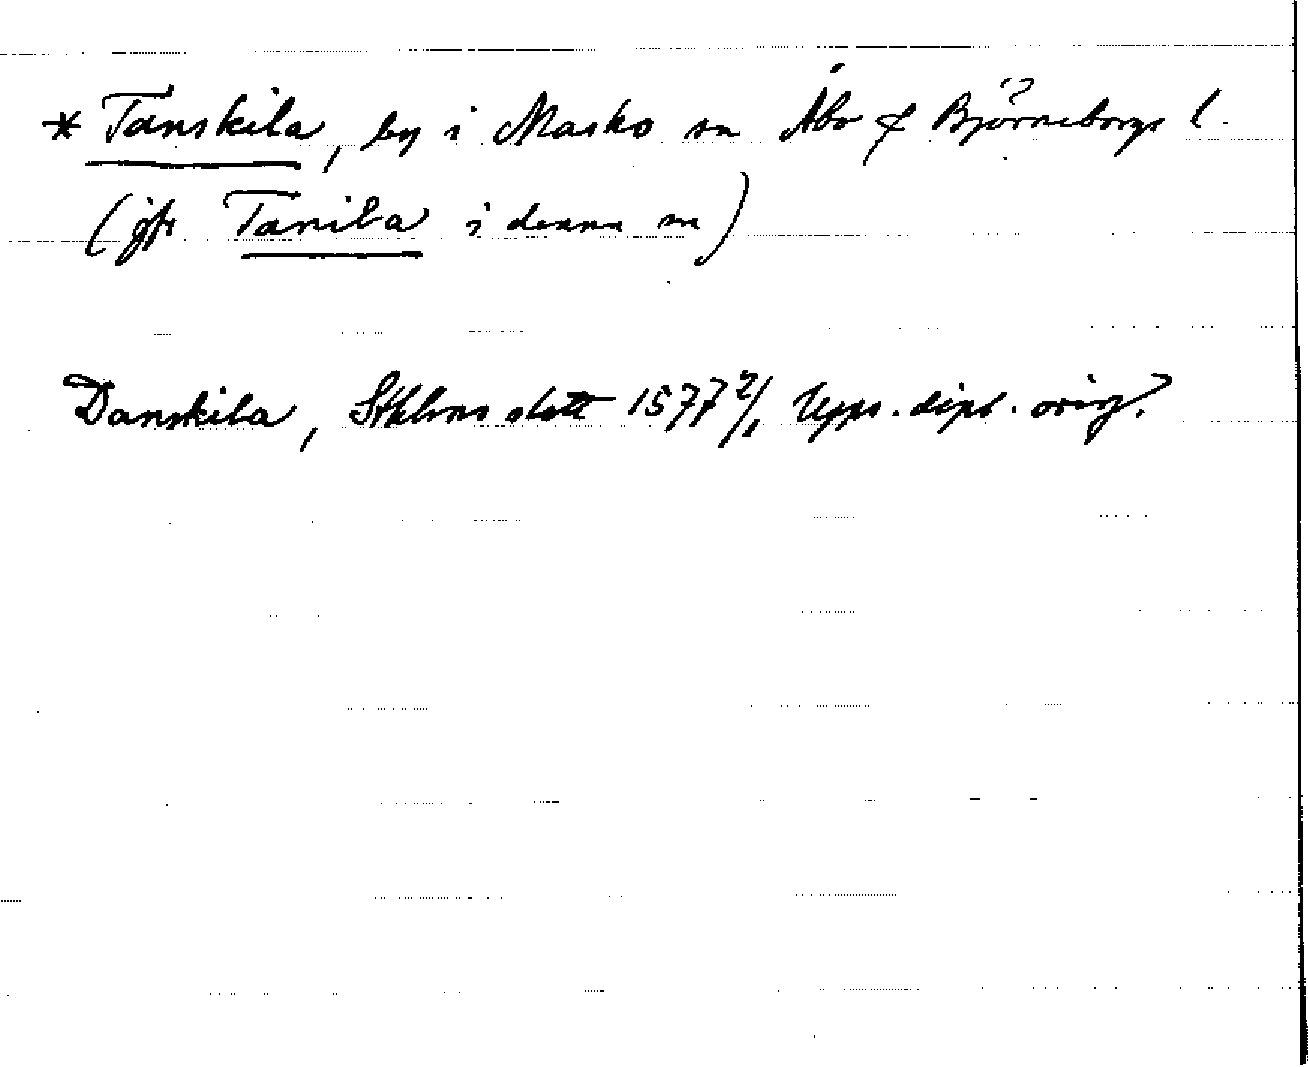 * Tanskila, by i Masko sn Åbo & Björneborgs l.
(jfr Tanila i denna sn)
Danskila, Sthlms slott 1577 2/1 Upps. dipl. orig.